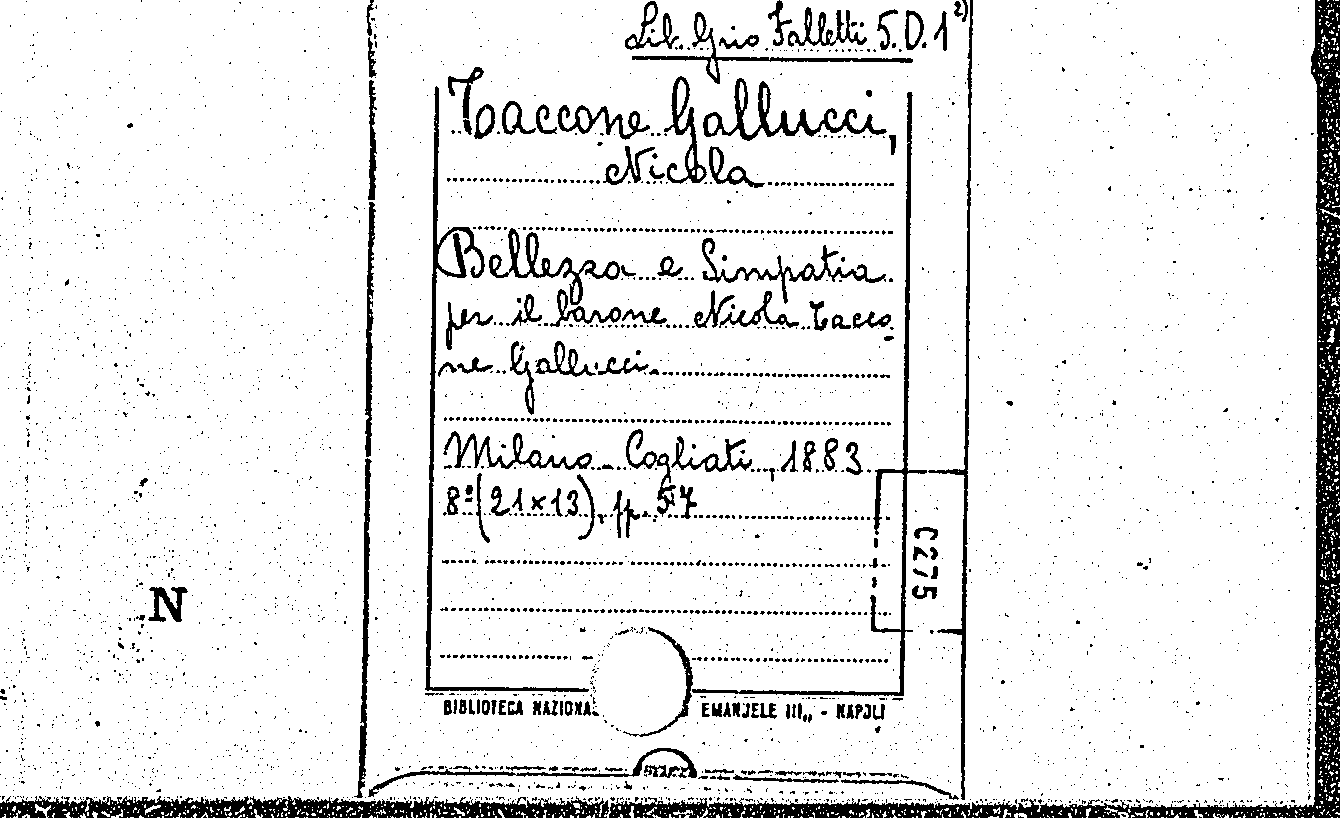 Lib. Grio Falletti 5.D.1²⁾
Taccone Gallucci,
Nicola
Bellezza e Simpatia
per il barone Nicola Tacco
ne Gallucci.
Milano - Cogliati, 1883
8º (21x13), pp. 57
C275
N
BIBLIOTECA NAZIONA EMANUELE III„ - NAPOLI